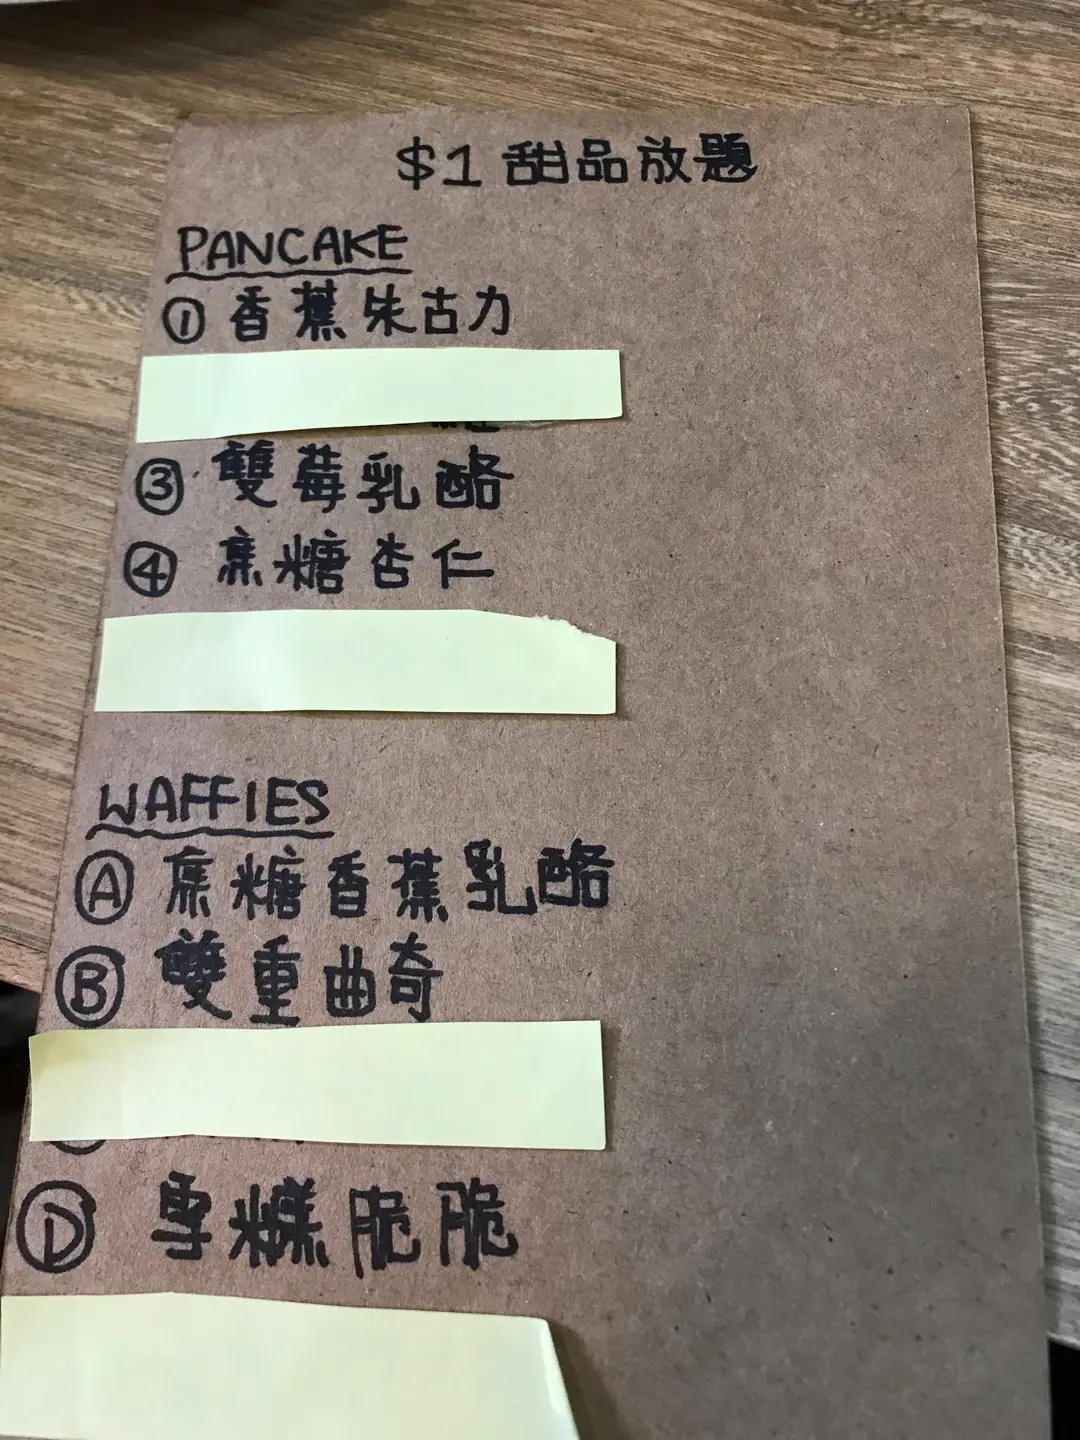 $1 甜品放題
PANCAKE
① 香蕉朱古力
③ 雙莓乳酪
④ 焦糖杏仁
WAFFlES
Ⓐ 焦糖香蕉乳酪
Ⓑ 雙重曲奇
Ⓓ 雪糕脆脆